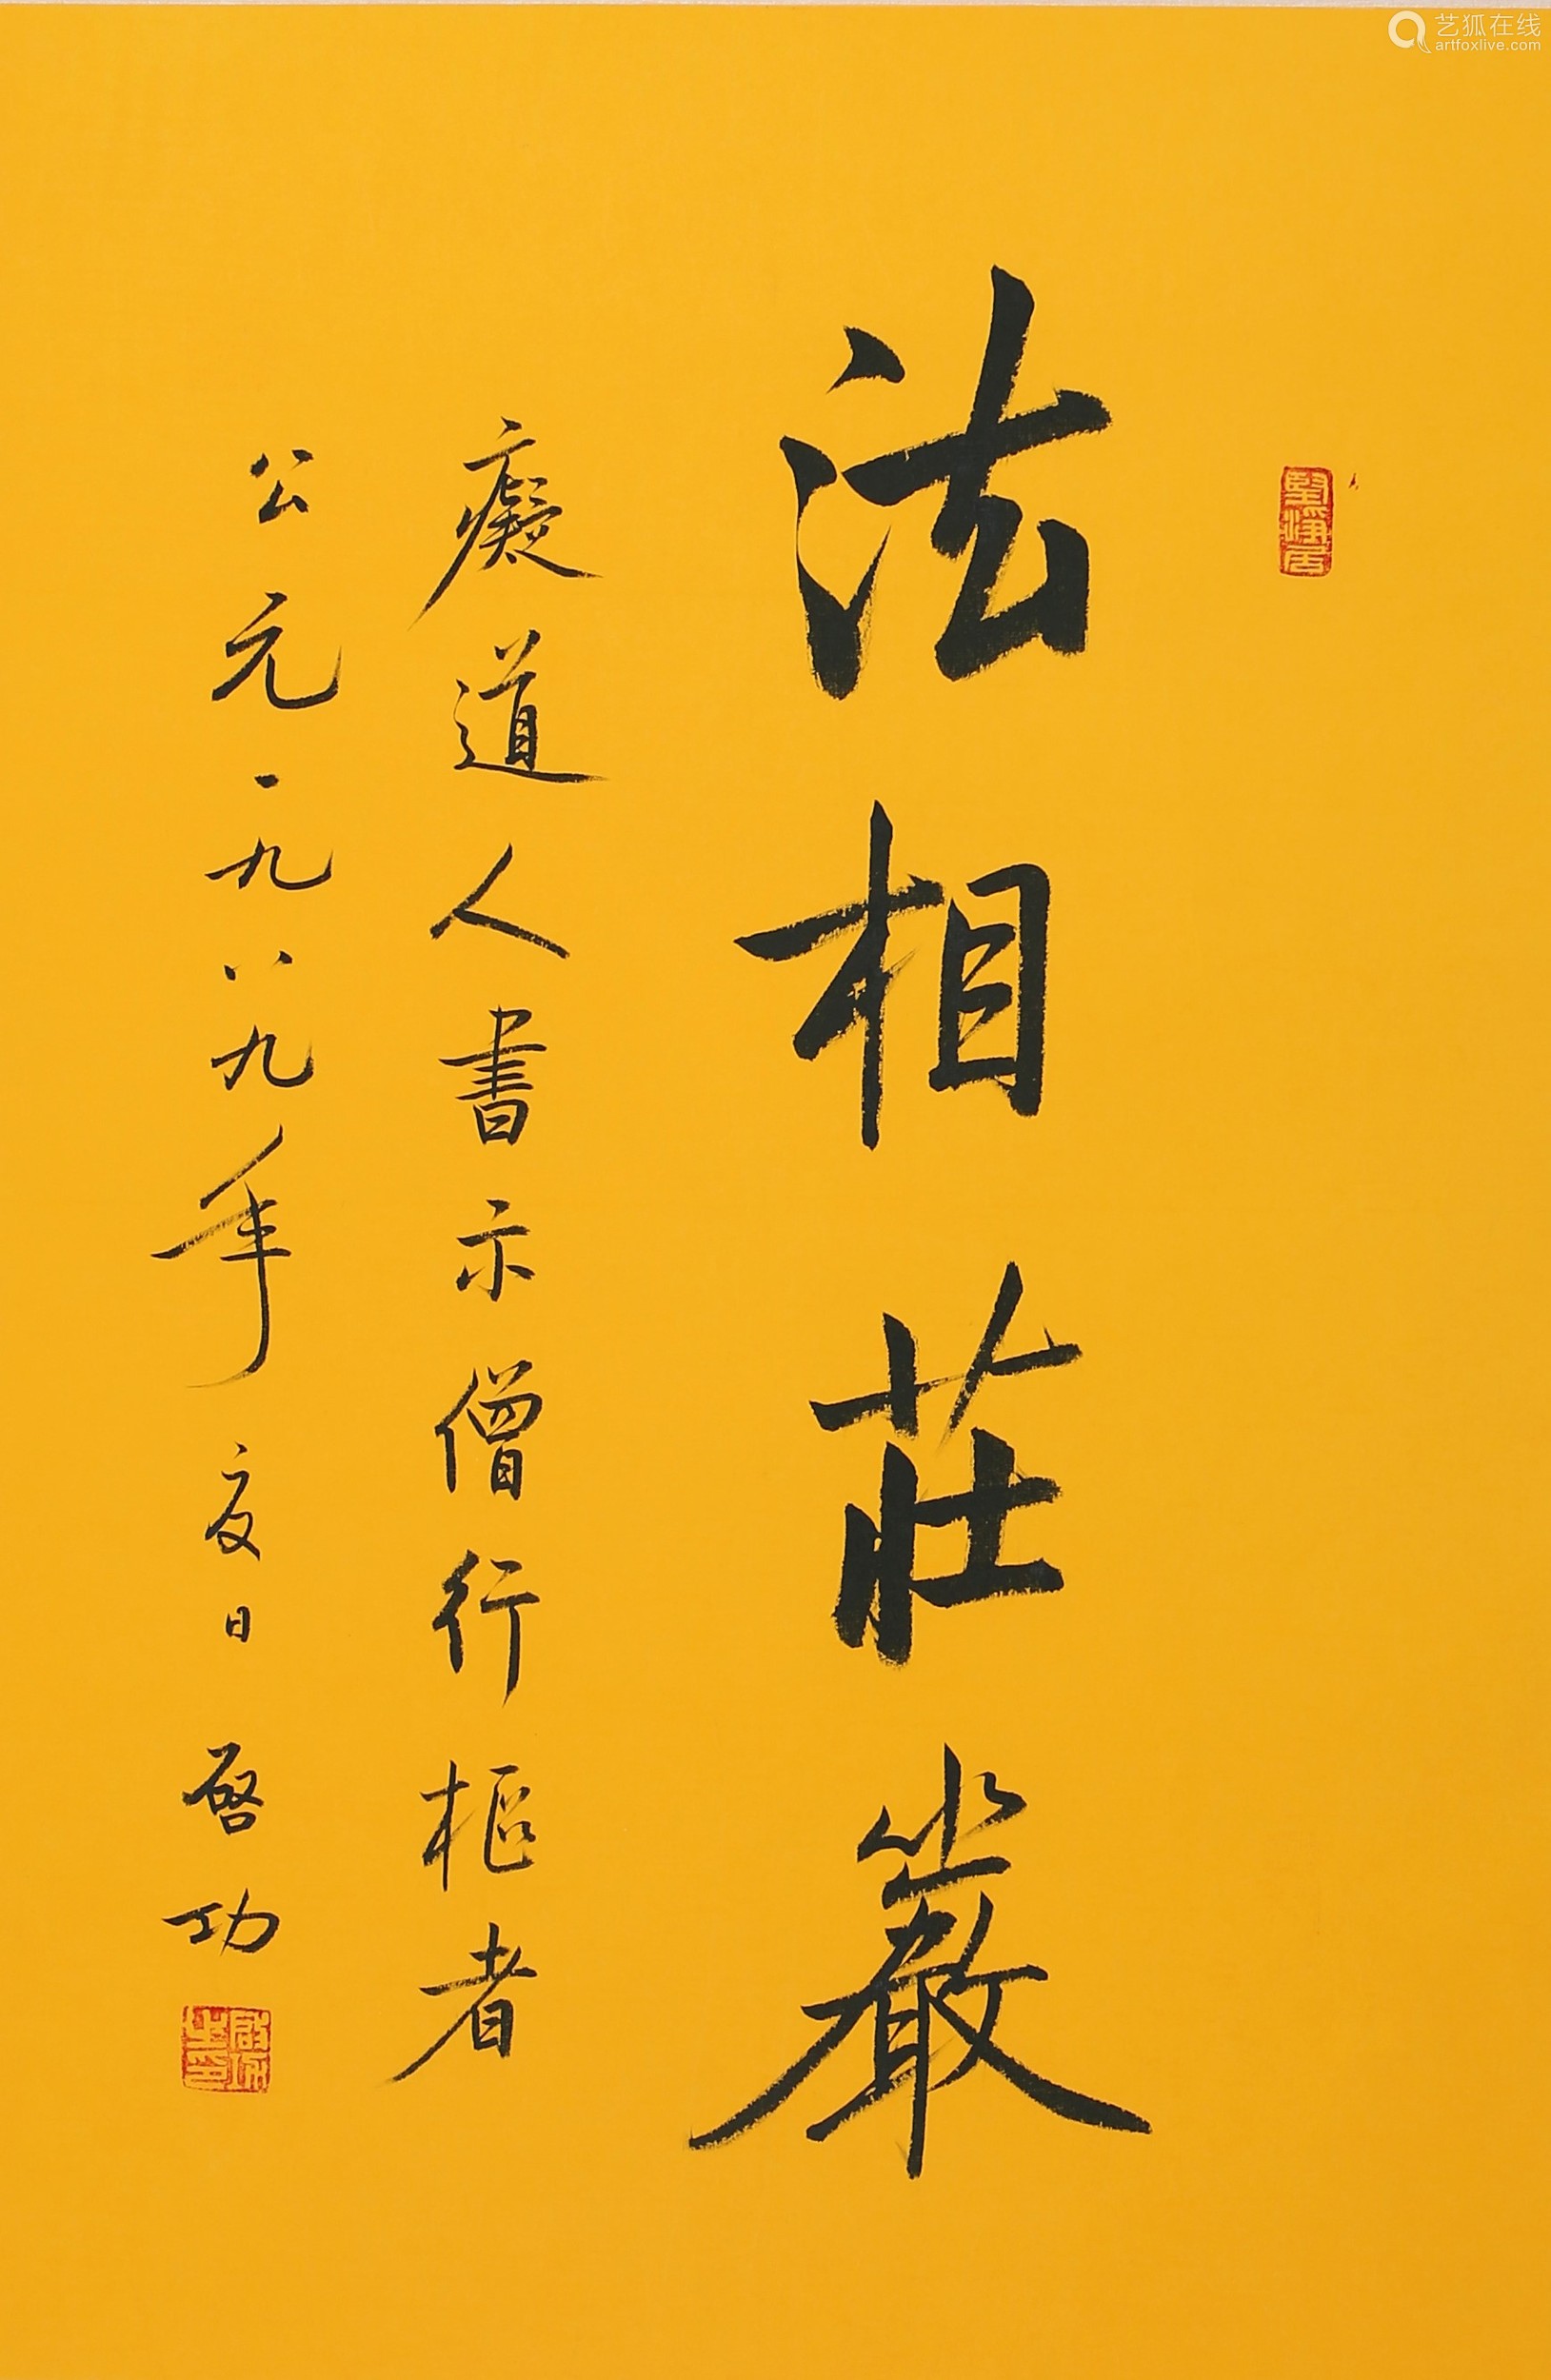 艺狐在线
artfoxlive.com
堅淨居
法相莊嚴
癡道人書示僧行樞者
公元一九八九年夏日啓功
啟功之印